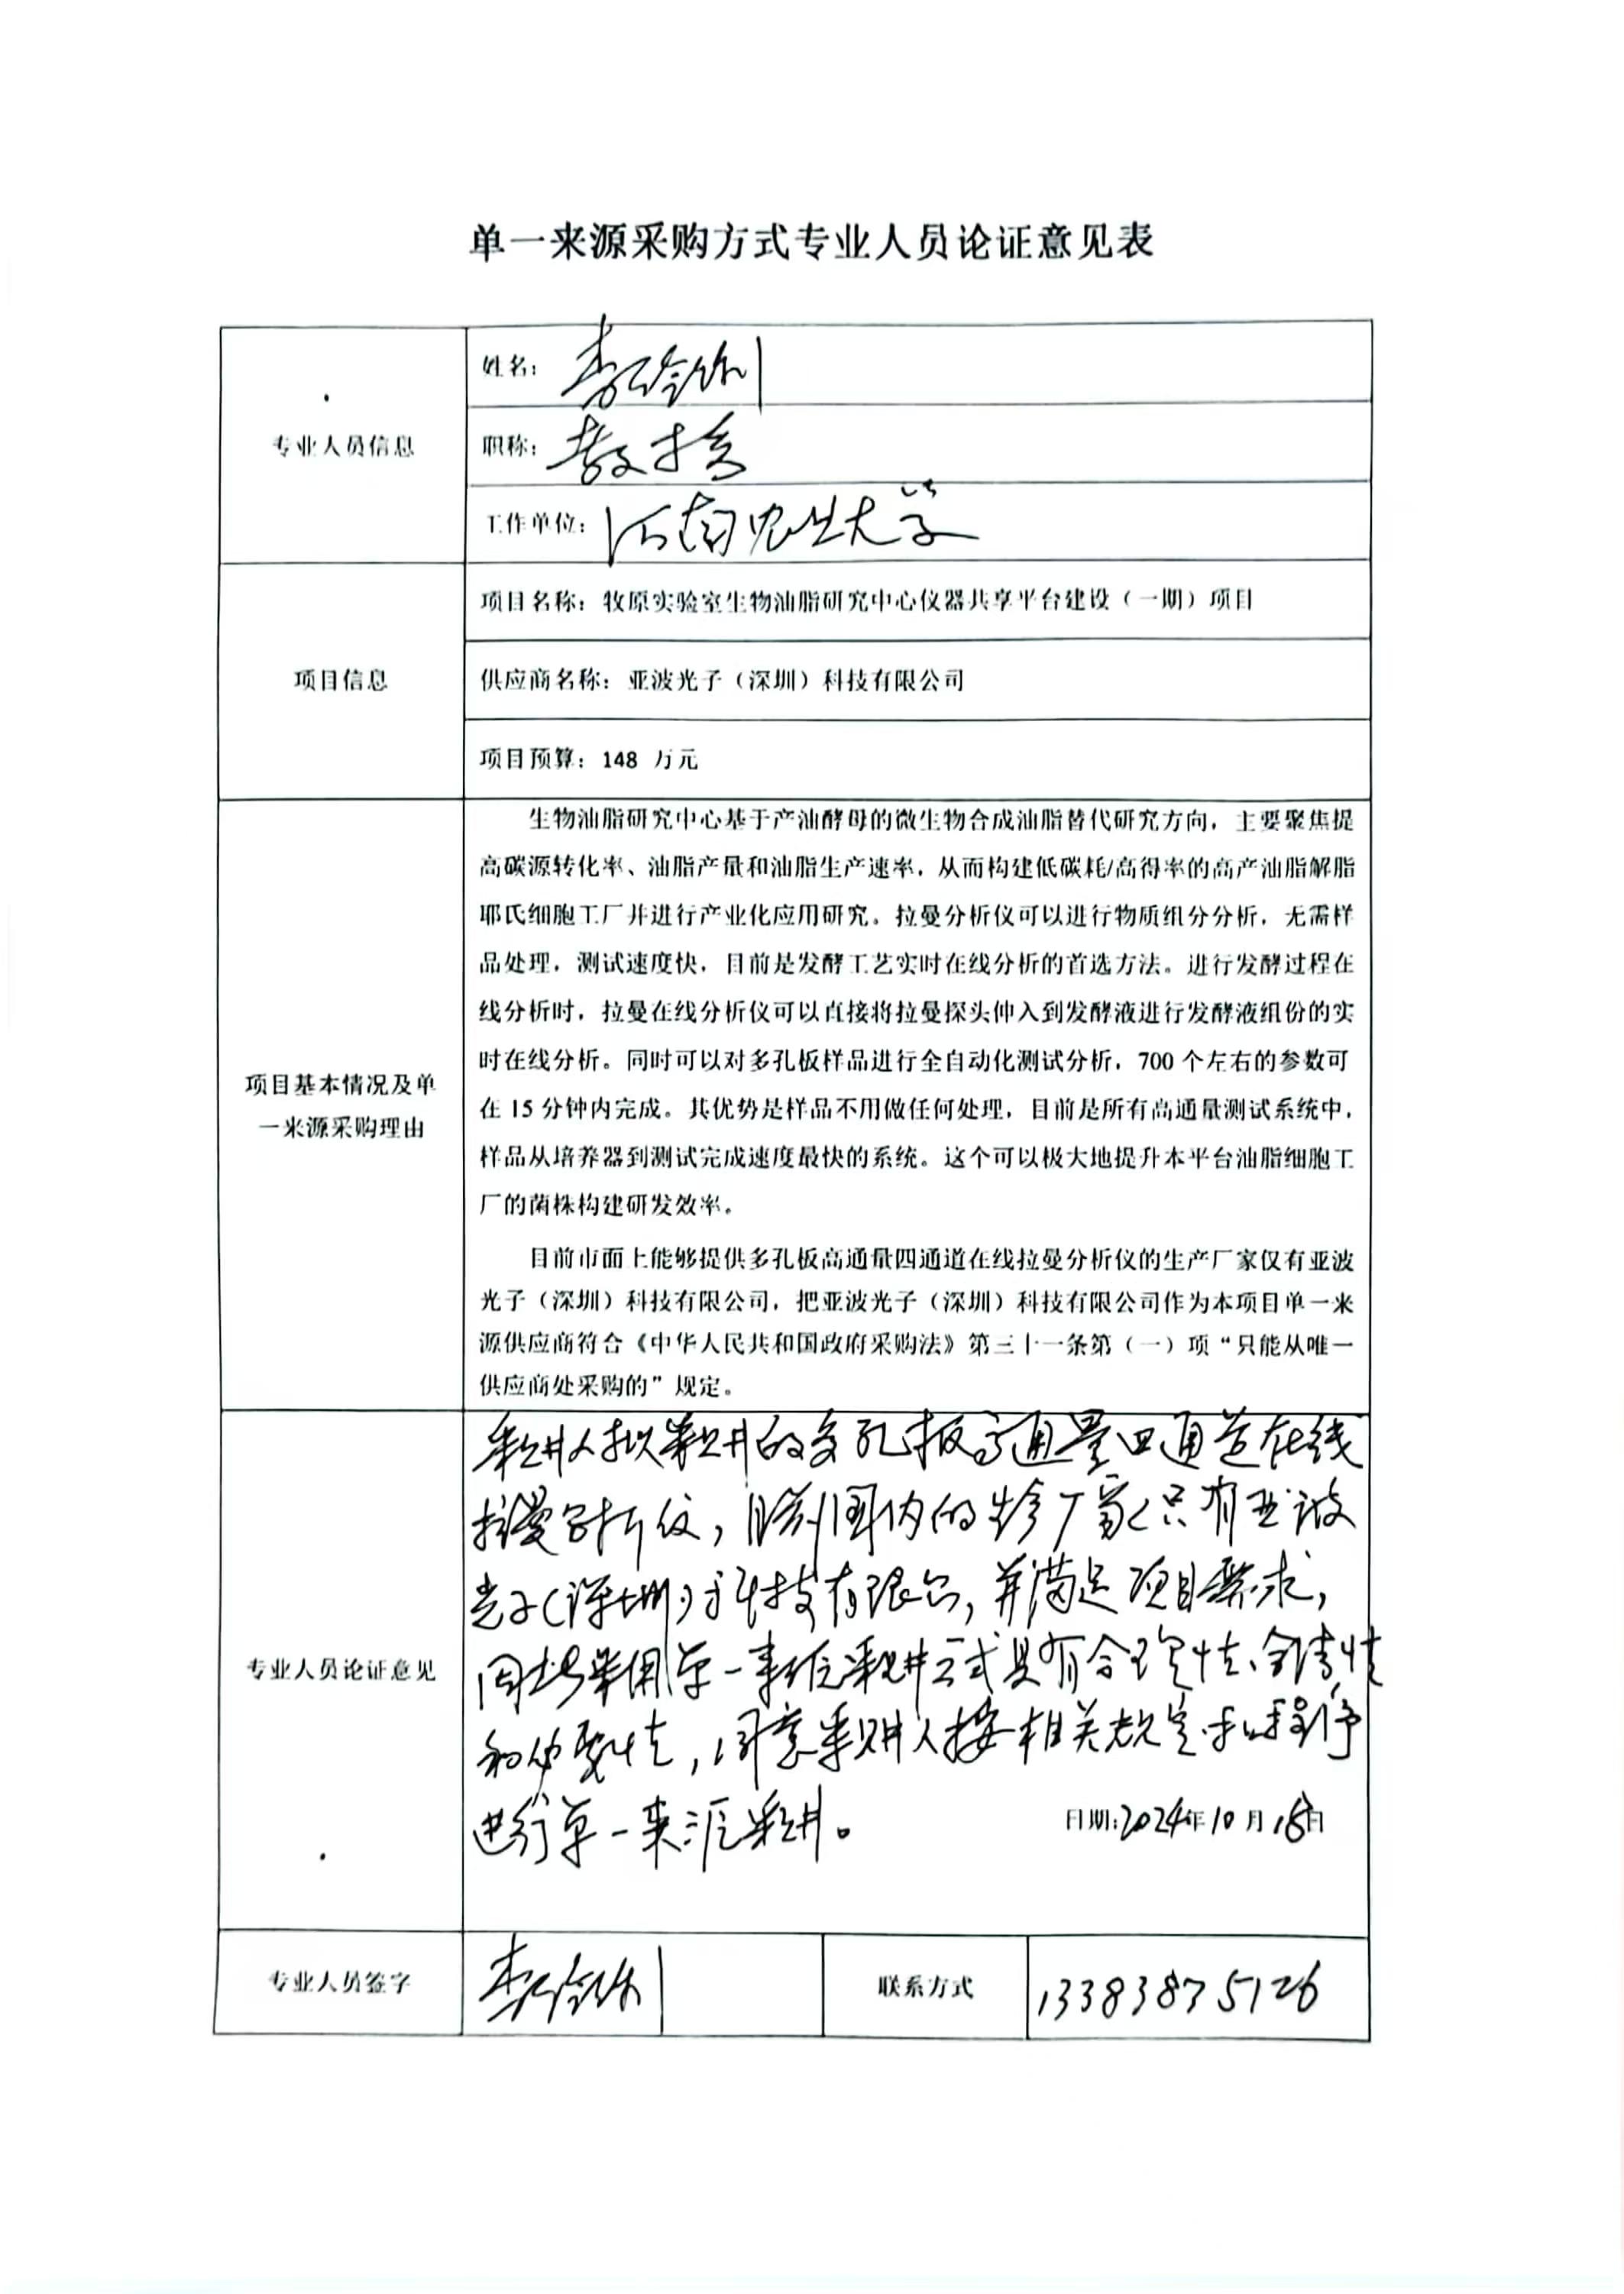 单一来源采购方式专业人员论证意见表
专业人员信息
姓名：李
职称：教授
工作单位：河南农业大学
项目信息
项目名称：牧原实验室生物油脂研究中心仪器共享平台建设（一期）项目
供应商名称：亚波光子（深圳）科技有限公司
项目预算：148 万元
项目基本情况及单
一来源采购理由
生物油脂研究中心基于产油酵母的微生物合成油脂替代研究方向，主要聚焦提
高碳源转化率、油脂产量和油脂生产速率，从而构建低碳耗/高得率的高产油脂解脂
耶氏细胞工厂并进行产业化应用研究。拉曼分析仪可以进行物质组分分析，无需样
品处理，测试速度快，目前是发酵工艺实时在线分析的首选方法。进行发酵过程在
线分析时，拉曼在线分析仪可以直接将拉曼探头伸入到发酵液进行发酵液组份的实
时在线分析。同时可以对多孔板样品进行全自动化测试分析，700 个左右的参数可
在 15 分钟内完成。其优势是样品不用做任何处理，目前是所有高通量测试系统中，
样品从培养器到测试完成速度最快的系统。这个可以极大地提升本平台油脂细胞工
厂的菌株构建研发效率。
目前市面上能够提供多孔板高通量四通道在线拉曼分析仪的生产厂家仅有亚波
光子（深圳）科技有限公司，把亚波光子（深圳）科技有限公司作为本项目单一来
源供应商符合《中华人民共和国政府采购法》第三十一条第（一）项“只能从唯一
供应商处采购的”规定。
专业人员论证意见
采购人拟采购的多孔板高通量四通道在线
拉曼分析仪，目前国内的生产厂家只有亚波
光子(深圳)科技有限公司，并满足项目需求，
因此采用单一来源采购方式具有合理性、合法性
和必要性，同意采购人按相关规定和程序
进行单一来源采购。
日期:2024年10月18日
专业人员签字
李
联系方式
13383875126